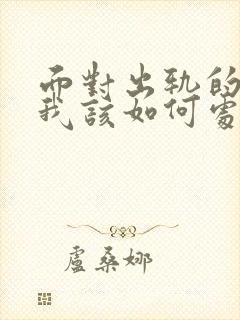 而對出軌的
我該如何處
盧桑娜